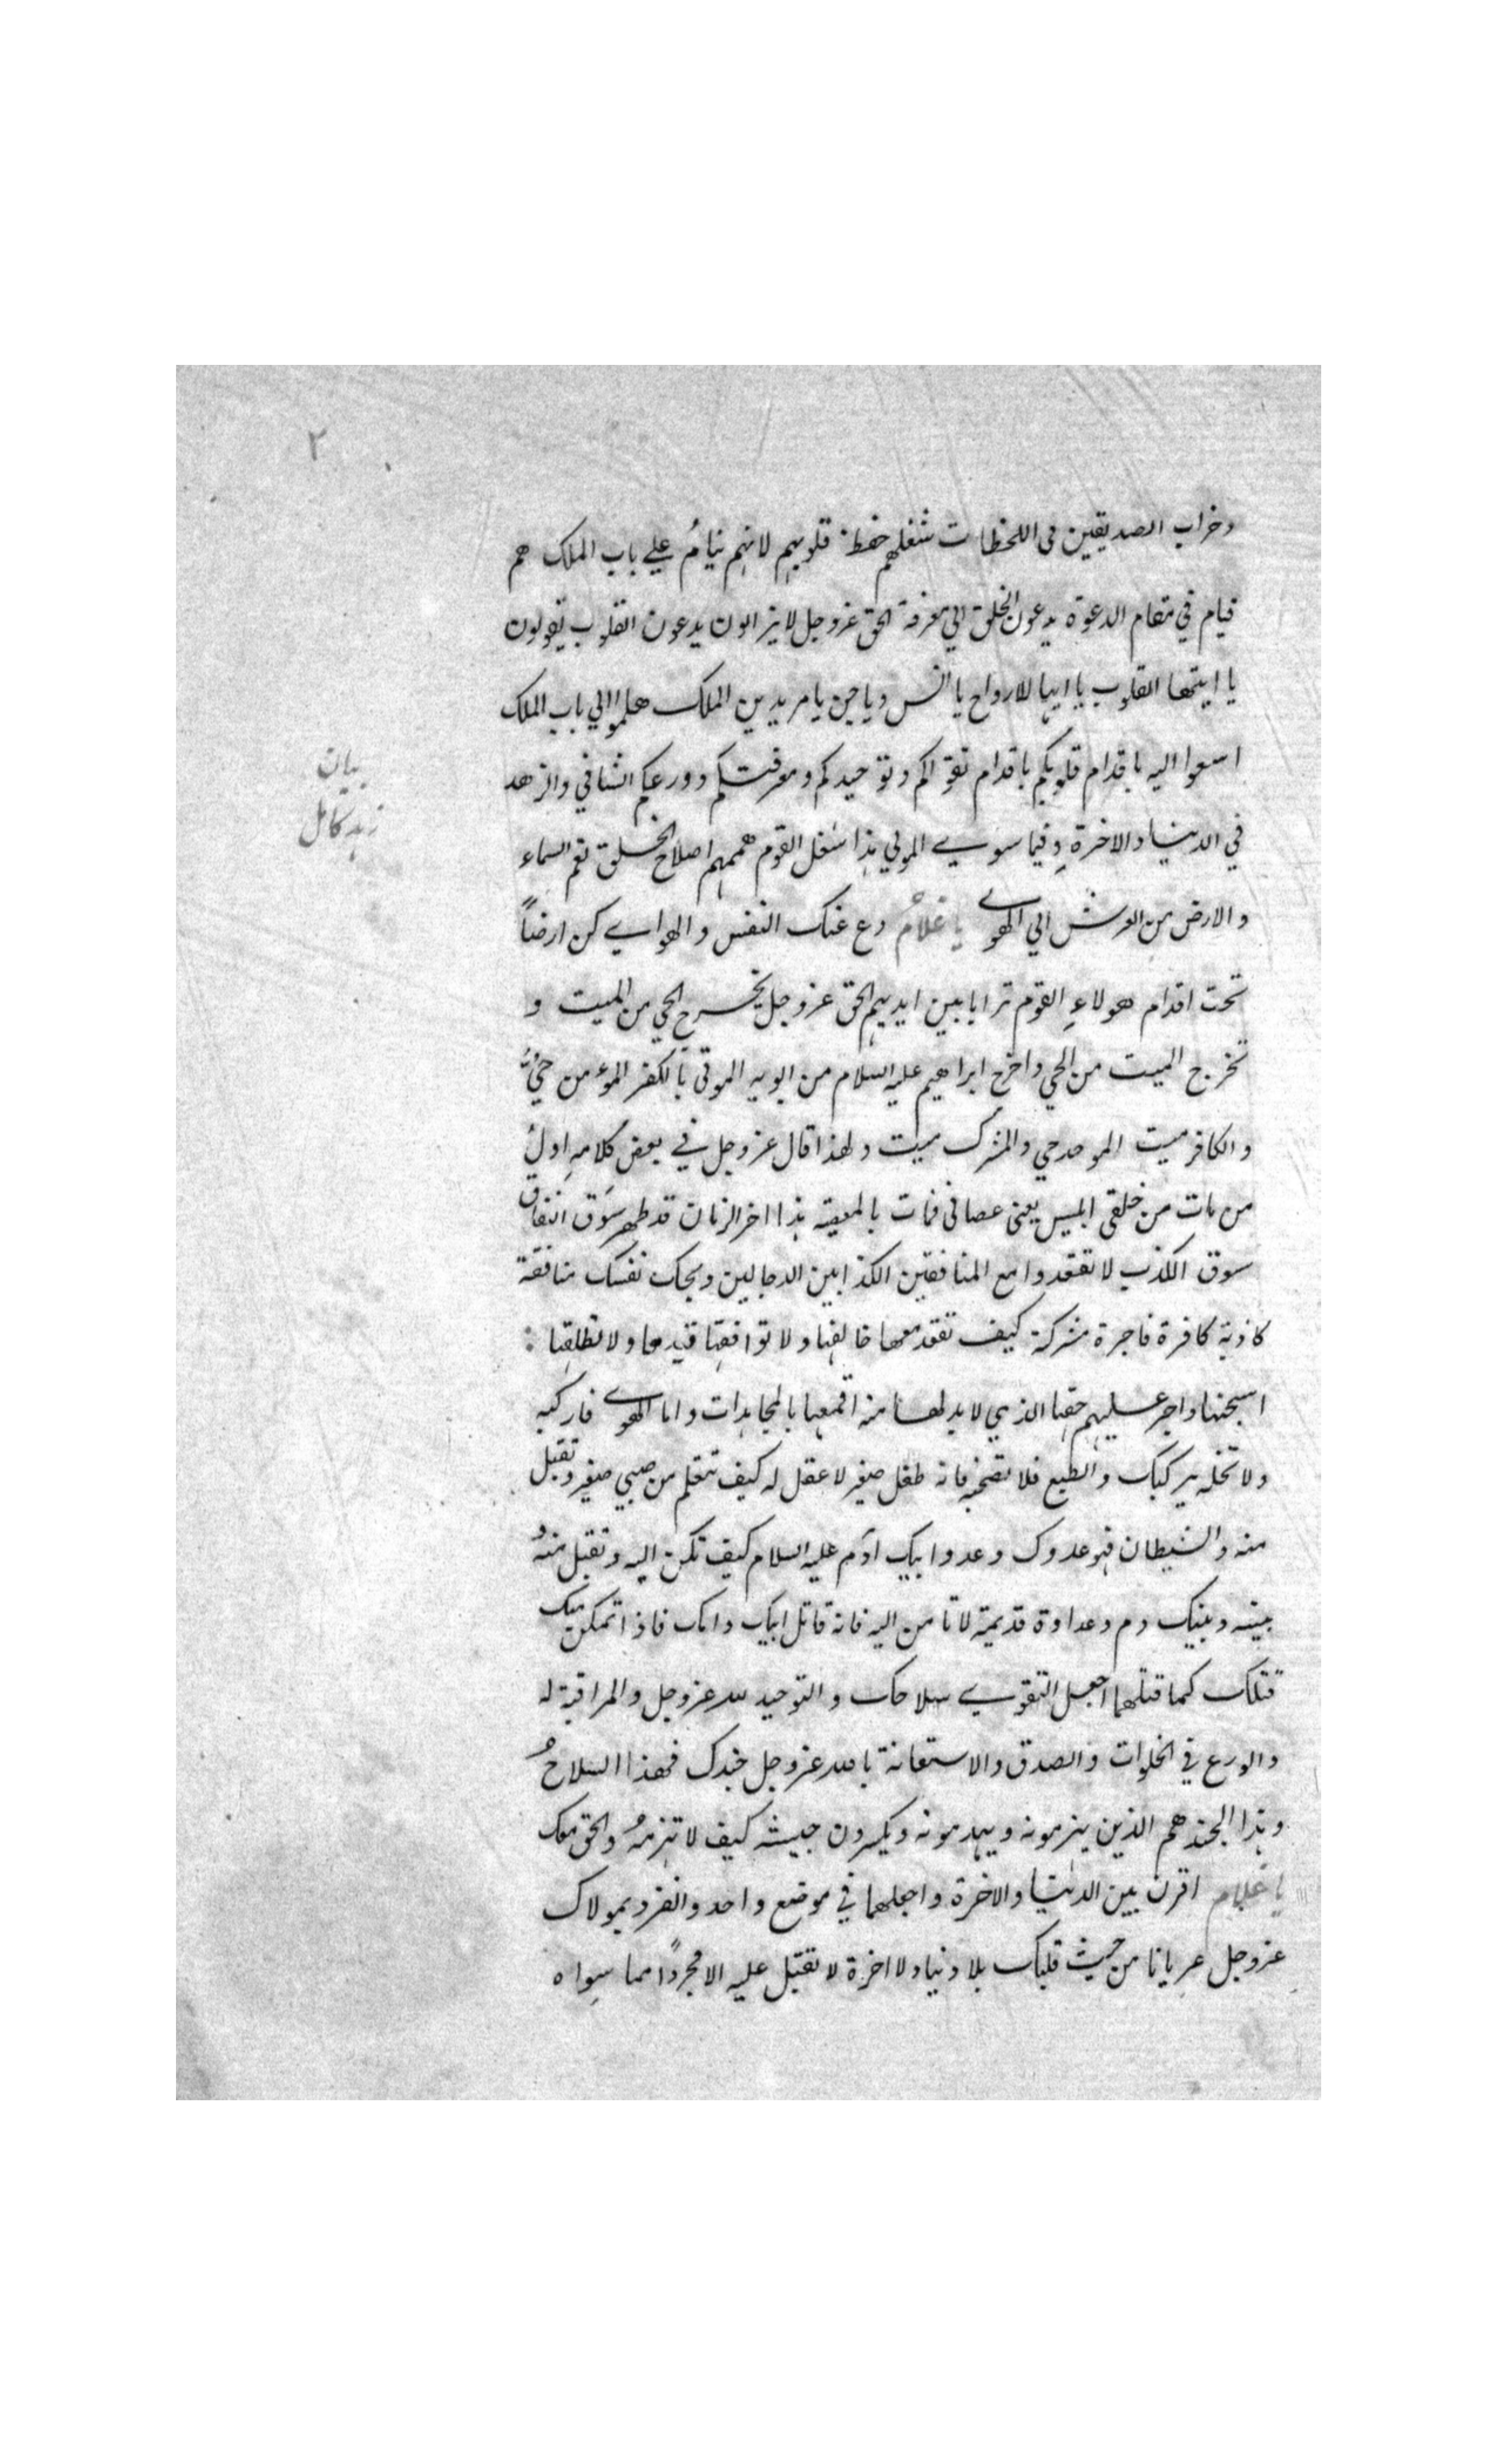 ٢
وخراب الصديقين فى اللحظات شغلهم حفظ قلوبهم لانهم نيامُ علي باب الملك هم
قيام في مقام الدعوة يدعون الخلق الي معرفة الحق عزوجل لايزالون يدعون القلوب يقولون
يا ايتها القلوب يا ايها الارواح يا انس وياجن يا مريدين الملك هلموا الي باب الملك
اسعوا اليه باقدام قلوبكم باقدام تقواكم وتوحيدكم ومعرفتكم وورعكم الشافي والزهد
في الدنيا والاخرة وفيما سوي المولي هذا شغل القوم هممهم اصلاح الخلق تعم السماء
والارض من العرش الي الهوي يا غلامُ دع عنك النفس والهواي كن ارضاً
تحت اقدام هولاءِ القوم ترابا بين ايديهم الحق عزوجل يخرج الحي من الميت و
تخرج الميت من الحي واخرج ابراهيم عليه السلام من ابويه الموتى بالكفر المومن حيٌّ
والكافر ميت الموحد حي والمشرك ميت ولهذا قال عزوجل في بعض كلامهِ اولُ
من مات من خلقى ابليس يعنى عصانى فمات بالمعصية هذا اخر الزمان قد ظهر سَوق النفاق
سوق الكذب لا تقعدوا مع المنافقين الكذابين الدجالين ويحك نفسك منافقة
كاذبة كافرة فاجرة مشركة كيف تقعد معها خالفها ولا توافقها قيدها ولا تطلقها :
اسجنها واجر عليهم حقها الذي لا بد لها منه اقمعها بالمجاهدات واما الهوي فاركبه
ولا تخله يركبك والطبع فلا تصحبه فانه طفل صغير لا عقل له كيف تتعلم من صبي صغير وتقبل
منه والشيطان فهو عدوك وعدو ابيك آدم عليه السلام كيف تسكن اليه وتقبل منهُ
بينه وبينك دم وعداوة قديمة لا تامن اليه فانه قاتل ابيك وامك فاذا تمكن منك
قتلك كما قتلهما اجعل التقوي سلاحك والتوحيد لله عزوجل والمراقبة له
والورع في الخلوات والصدق والاستعانة بالله عزوجل جندك فهذا السلاحُ
وهذا الجند هم الذين يهزمونه ويهدمونه ويكسرون جيشه كيف لا تهزمهُ والحق معك
يا غلام اقرن بين الدنيا والاخرة واجعلهما في موضع واحد وانفرد بمولاك
عزوجل عريانا من حيث قلبك بلا دنيا ولا اخرة لا تقبل عليه الا مجرداً مما سواه
بيان
زهد كامل